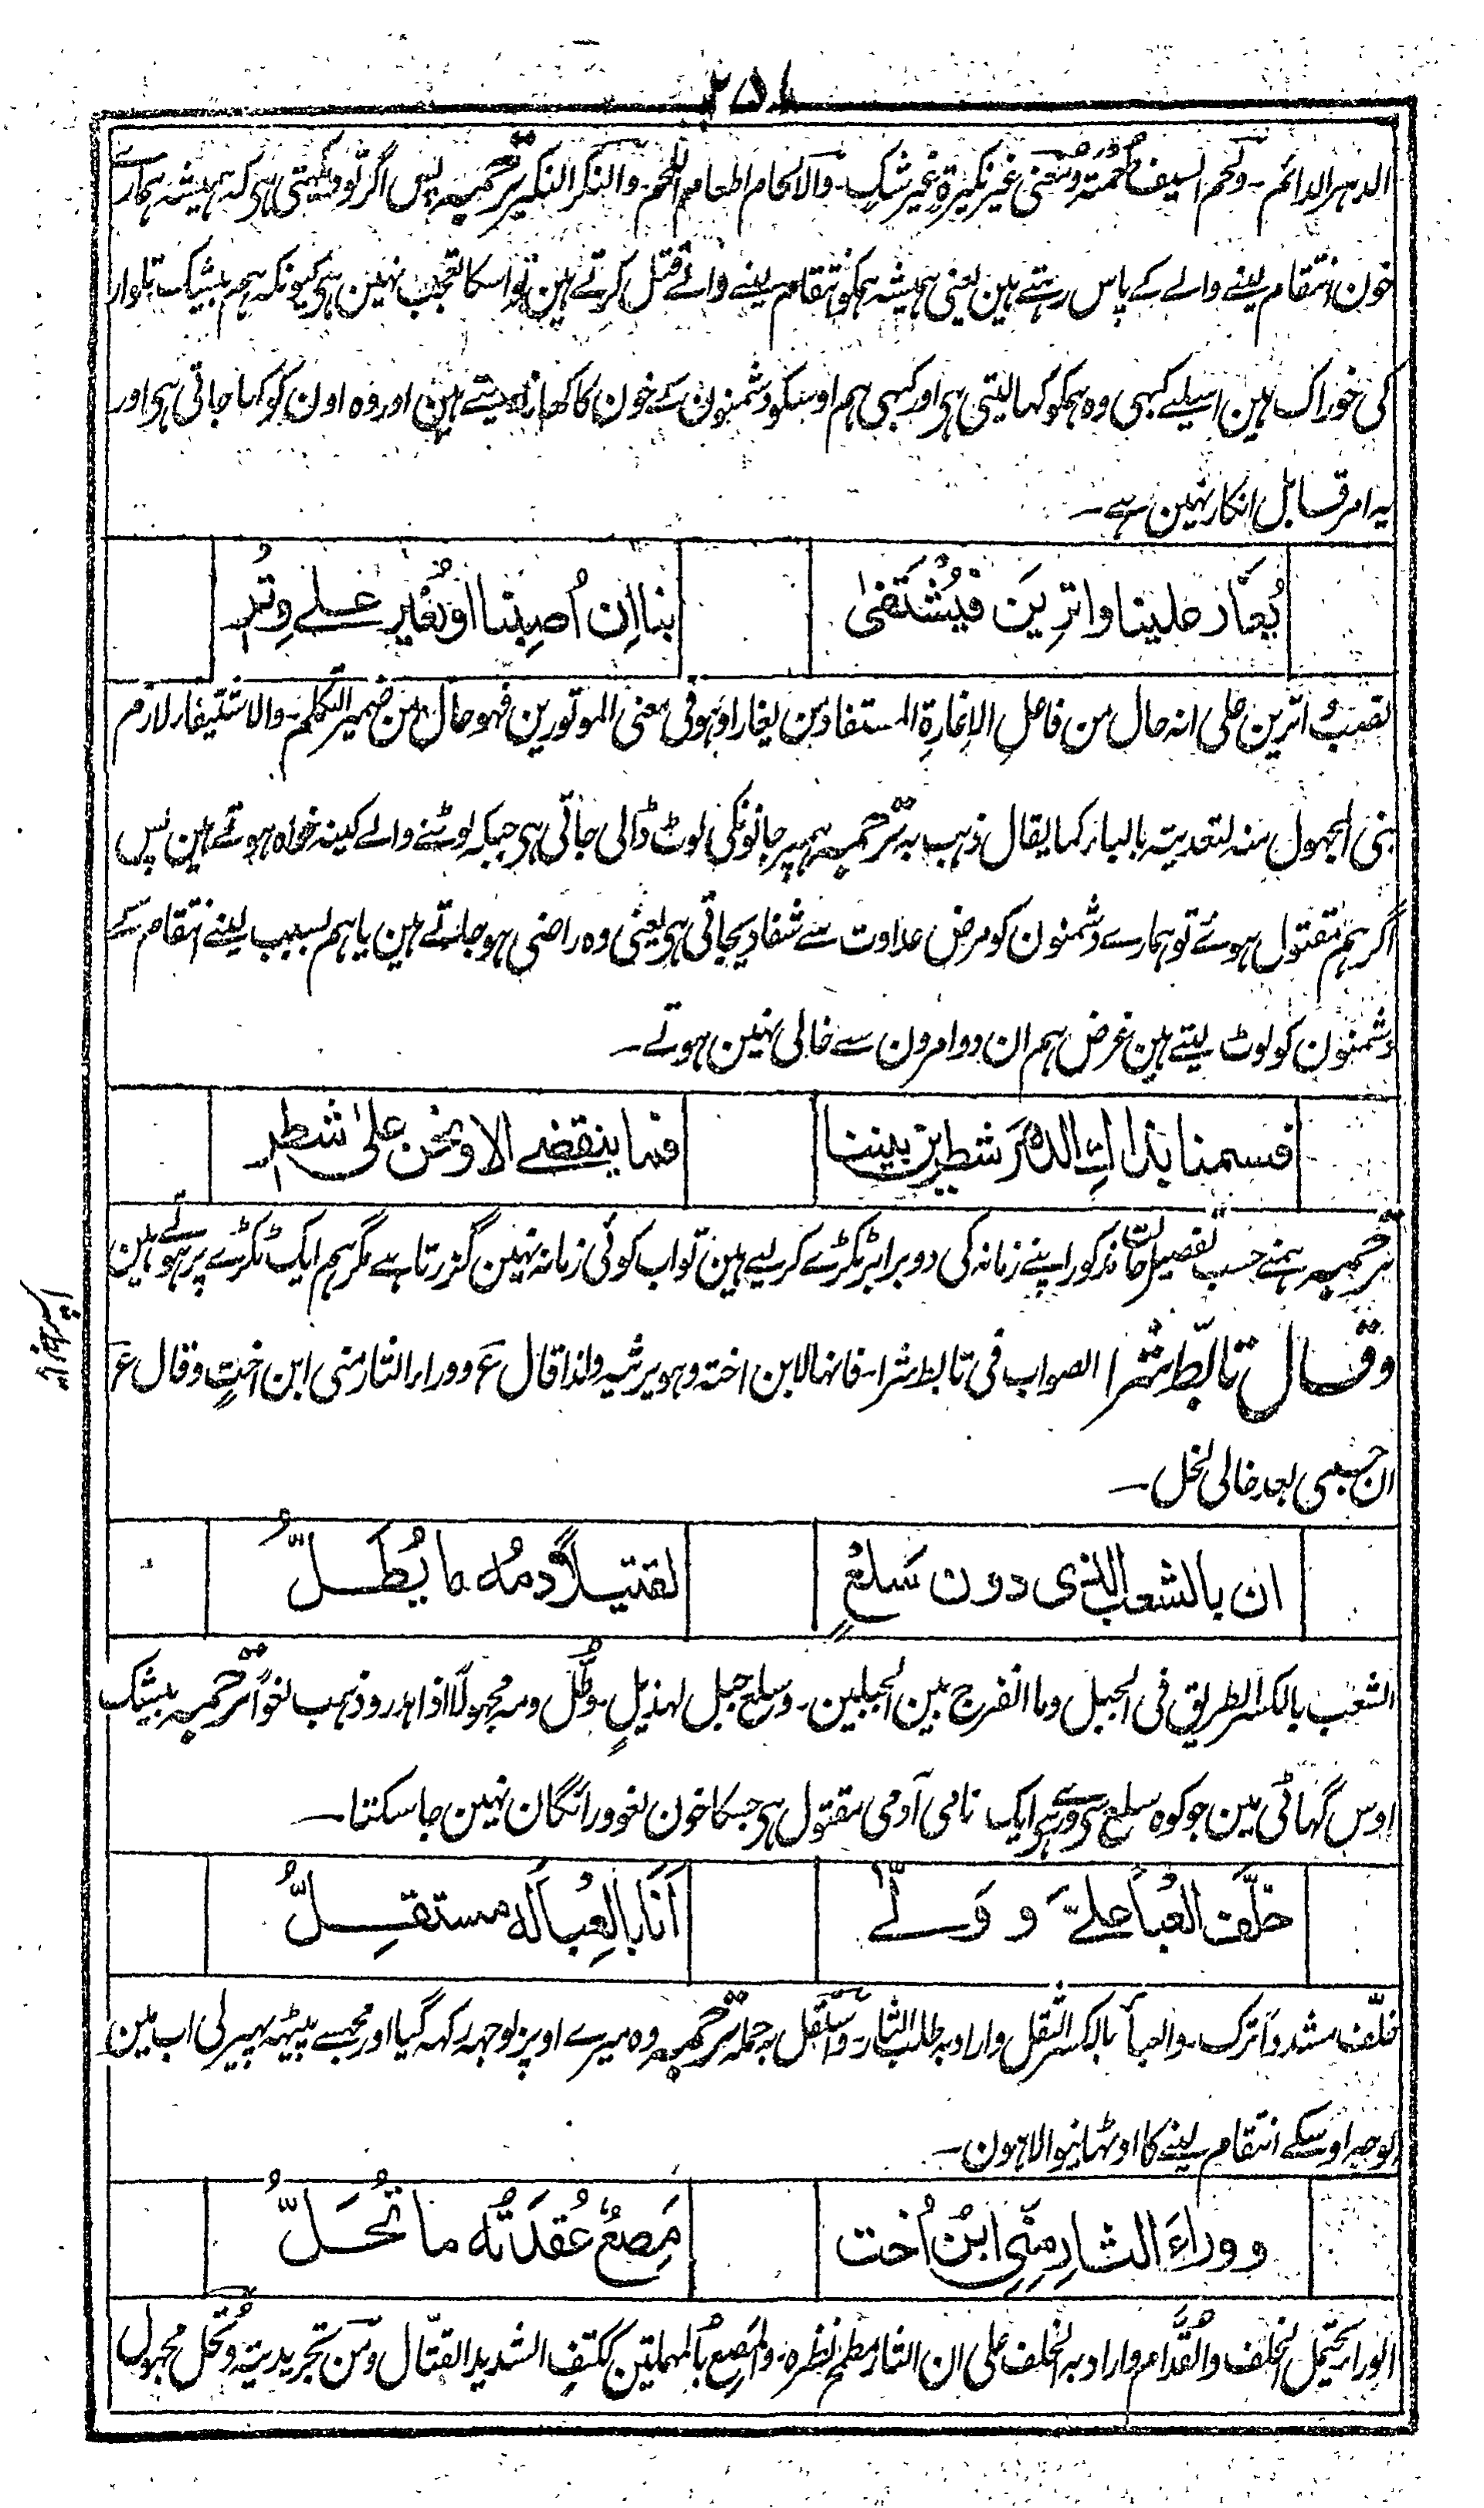 ۲۵۸
الدہر الدائم ۔ ولحم السیف طعمتہ ومعنی غیر نکیرۃ غیر شک ۔ والالحام اطعام اللحم ۔ والنکر النکیر ترجمہ پس اگر تو دیکہتی ہی کہ ہمیشہ ہمارے
خون انتقام لینے والے کے پاس رہتے ہین یعنی ہمیشہ ہمکو انتقام لینے والے قتل کرتے ہین تو اسکا تعجب نہین ہی کیونکہ ہم بیشک تلوار
کی خوراک ہین اسیلے کبہی وہ ہمکو کہا لیتی ہی اور کبہی ہم اوسکو دشمنون کے خون کا کھانا دیتے ہین اور وہ اون کو کہا جاتی ہی اور
یہ امر قابل انکار نہین ہے ۔
یُغَار علینا واترِینَ فیُشْتَفیٰ بنا اِن اُصِبنا اونُغیر علے وِترِ
نصب واترین علی انہ حال من فاعل الاغارۃ المستفاد من یغار او ہو فی معنی الموتورین فہو حال من ضمیر المتکلم ۔ والاشتیفاء لازم
بنی المجہول منہ لتعدیتہ بالباء کما یقال ذہب بہ ترجمہ ہم پر جانونکی لوٹ ڈالی جاتی ہی جبکہ لوٹنے والے کینہ خواہ ہوتے ہین پس
اگر ہم مقتول ہوئے تو ہمارے دشمنون کو مرض عداوت سے شفا دیجاتی ہی یعنی وہ راضی ہو جاتے ہین یا ہم بسبب لینے انتقام کے
دشمنون کو لوٹ لیتے ہین غرض ہم ان دو امرون سے خالی نہین ہوتے ۔
قسمنا بذاك الدهرَ شطرین بیننا فما ینقضے الا ونحن علیٰ شطرِ
ترجمہ ہمنے حسب تفصیل مذکور اپنے زمانہ کی دو برابر ٹکڑے کر لیے ہین تو اب کوئی زمانہ نہین گزرتا ہے مگر ہم ایک ٹکڑے پر ہوتے ہین
وقال تابّط شرا الصواب فی تابط شرا ۔ فانہا لابن اختہ وہو یرثیہ ولذا قال ع ووراء الثار منی ابن اختٍ وقال ع
ان جسمی بعد خالی لخل ۔
ان بالشعب الذی دون سَلعٍ لقتیلاً دمُه ما یُطَلُّ
الشعب بالکسر الطریق فی الجبل وما انفرج بین الجبلین ۔ وسلع جبل لہذیلٍ ۔ وطُلّ دمہ مجہولًا اذا ہدر وذہب لغوًا ترجمہ بیشک
اوس گہاٹی مین جو کوہ سلع سی ورے ہی ایک نامی آدمی مقتول ہی جسکا خون لغو ورائگان نہین جا سکتا ۔
خلَّف العِبأ علےَّ و وَلّے اَنَا بالعِبأ له مستقِلُّ
خلّف مشددًا ترک ۔ والعبأ بالکسر الثقل واراد بہ طلب الثار ۔ واستقل بہ حملہ ترجمہ وہ میرے اوپر بوجہہ رکہہ گیا اور مجہسے پیٹہہ پہیر لی اب مین
بوجہہ اوسکے انتقام لینے کا اوٹہانیوالا ہون ۔
و وراءَ الثارِ مِنّی ابنُ اُخت مَصِعٌ عُقدَتُه ما تُحَلُّ
الوراء یحتمل الخلف والقُدّام واراد بہ الخلف علی ان الثار مطمح نظرہ ۔ والمَصِع بالمہملتین ککتِف الشدید القتّال ومن تجریدیۃ وتُحل مجہول